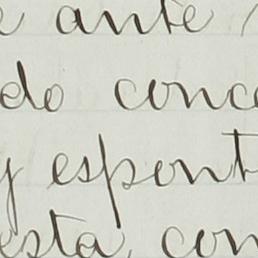 e ante
do conce
y espont
esta, con